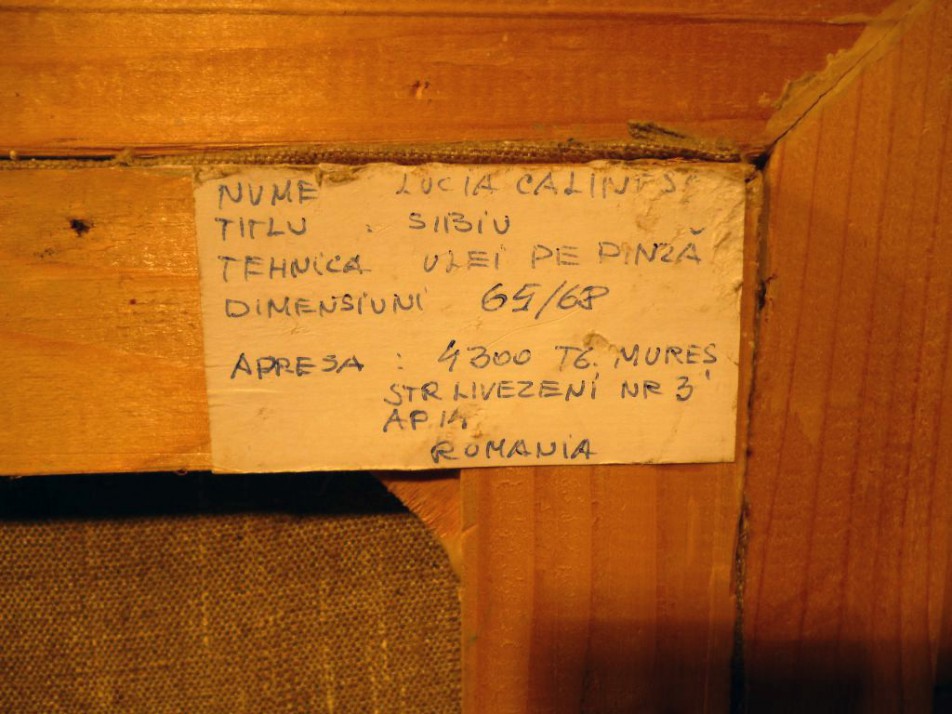 NUME LUCIA CALINESC
TITLU . SIBIU
TEHNICA ULEI PE PINZĂ
DIMENSIUNI 65/68
ADRESA : 4300 TG. MURES
STR LIVEZENI NR 3
AP 14
ROMANIA